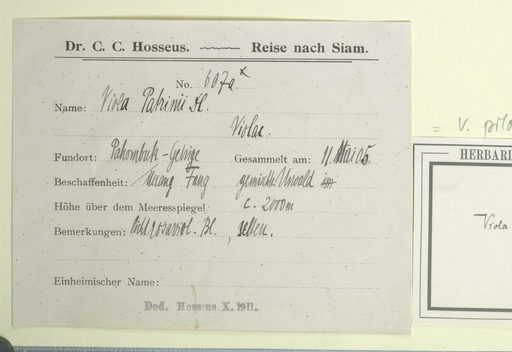 Dr. C. C. Hosseus. Reise nach Siam.
No. 607a x
Name: Viola Patrinii
Violac.
Fundort: Gebirge Gesammelt am: 11. Mai 05.
Beschaffenheit: Muang Fang gemischter Urwald
Höhe über dem Meeresspiegel: c. 2000 m
Bemerkungen: Bl., selten.
Einheimischer Name:
Ded. Hosseus X. 1911.
= V. pilo
HERBARI
Viola